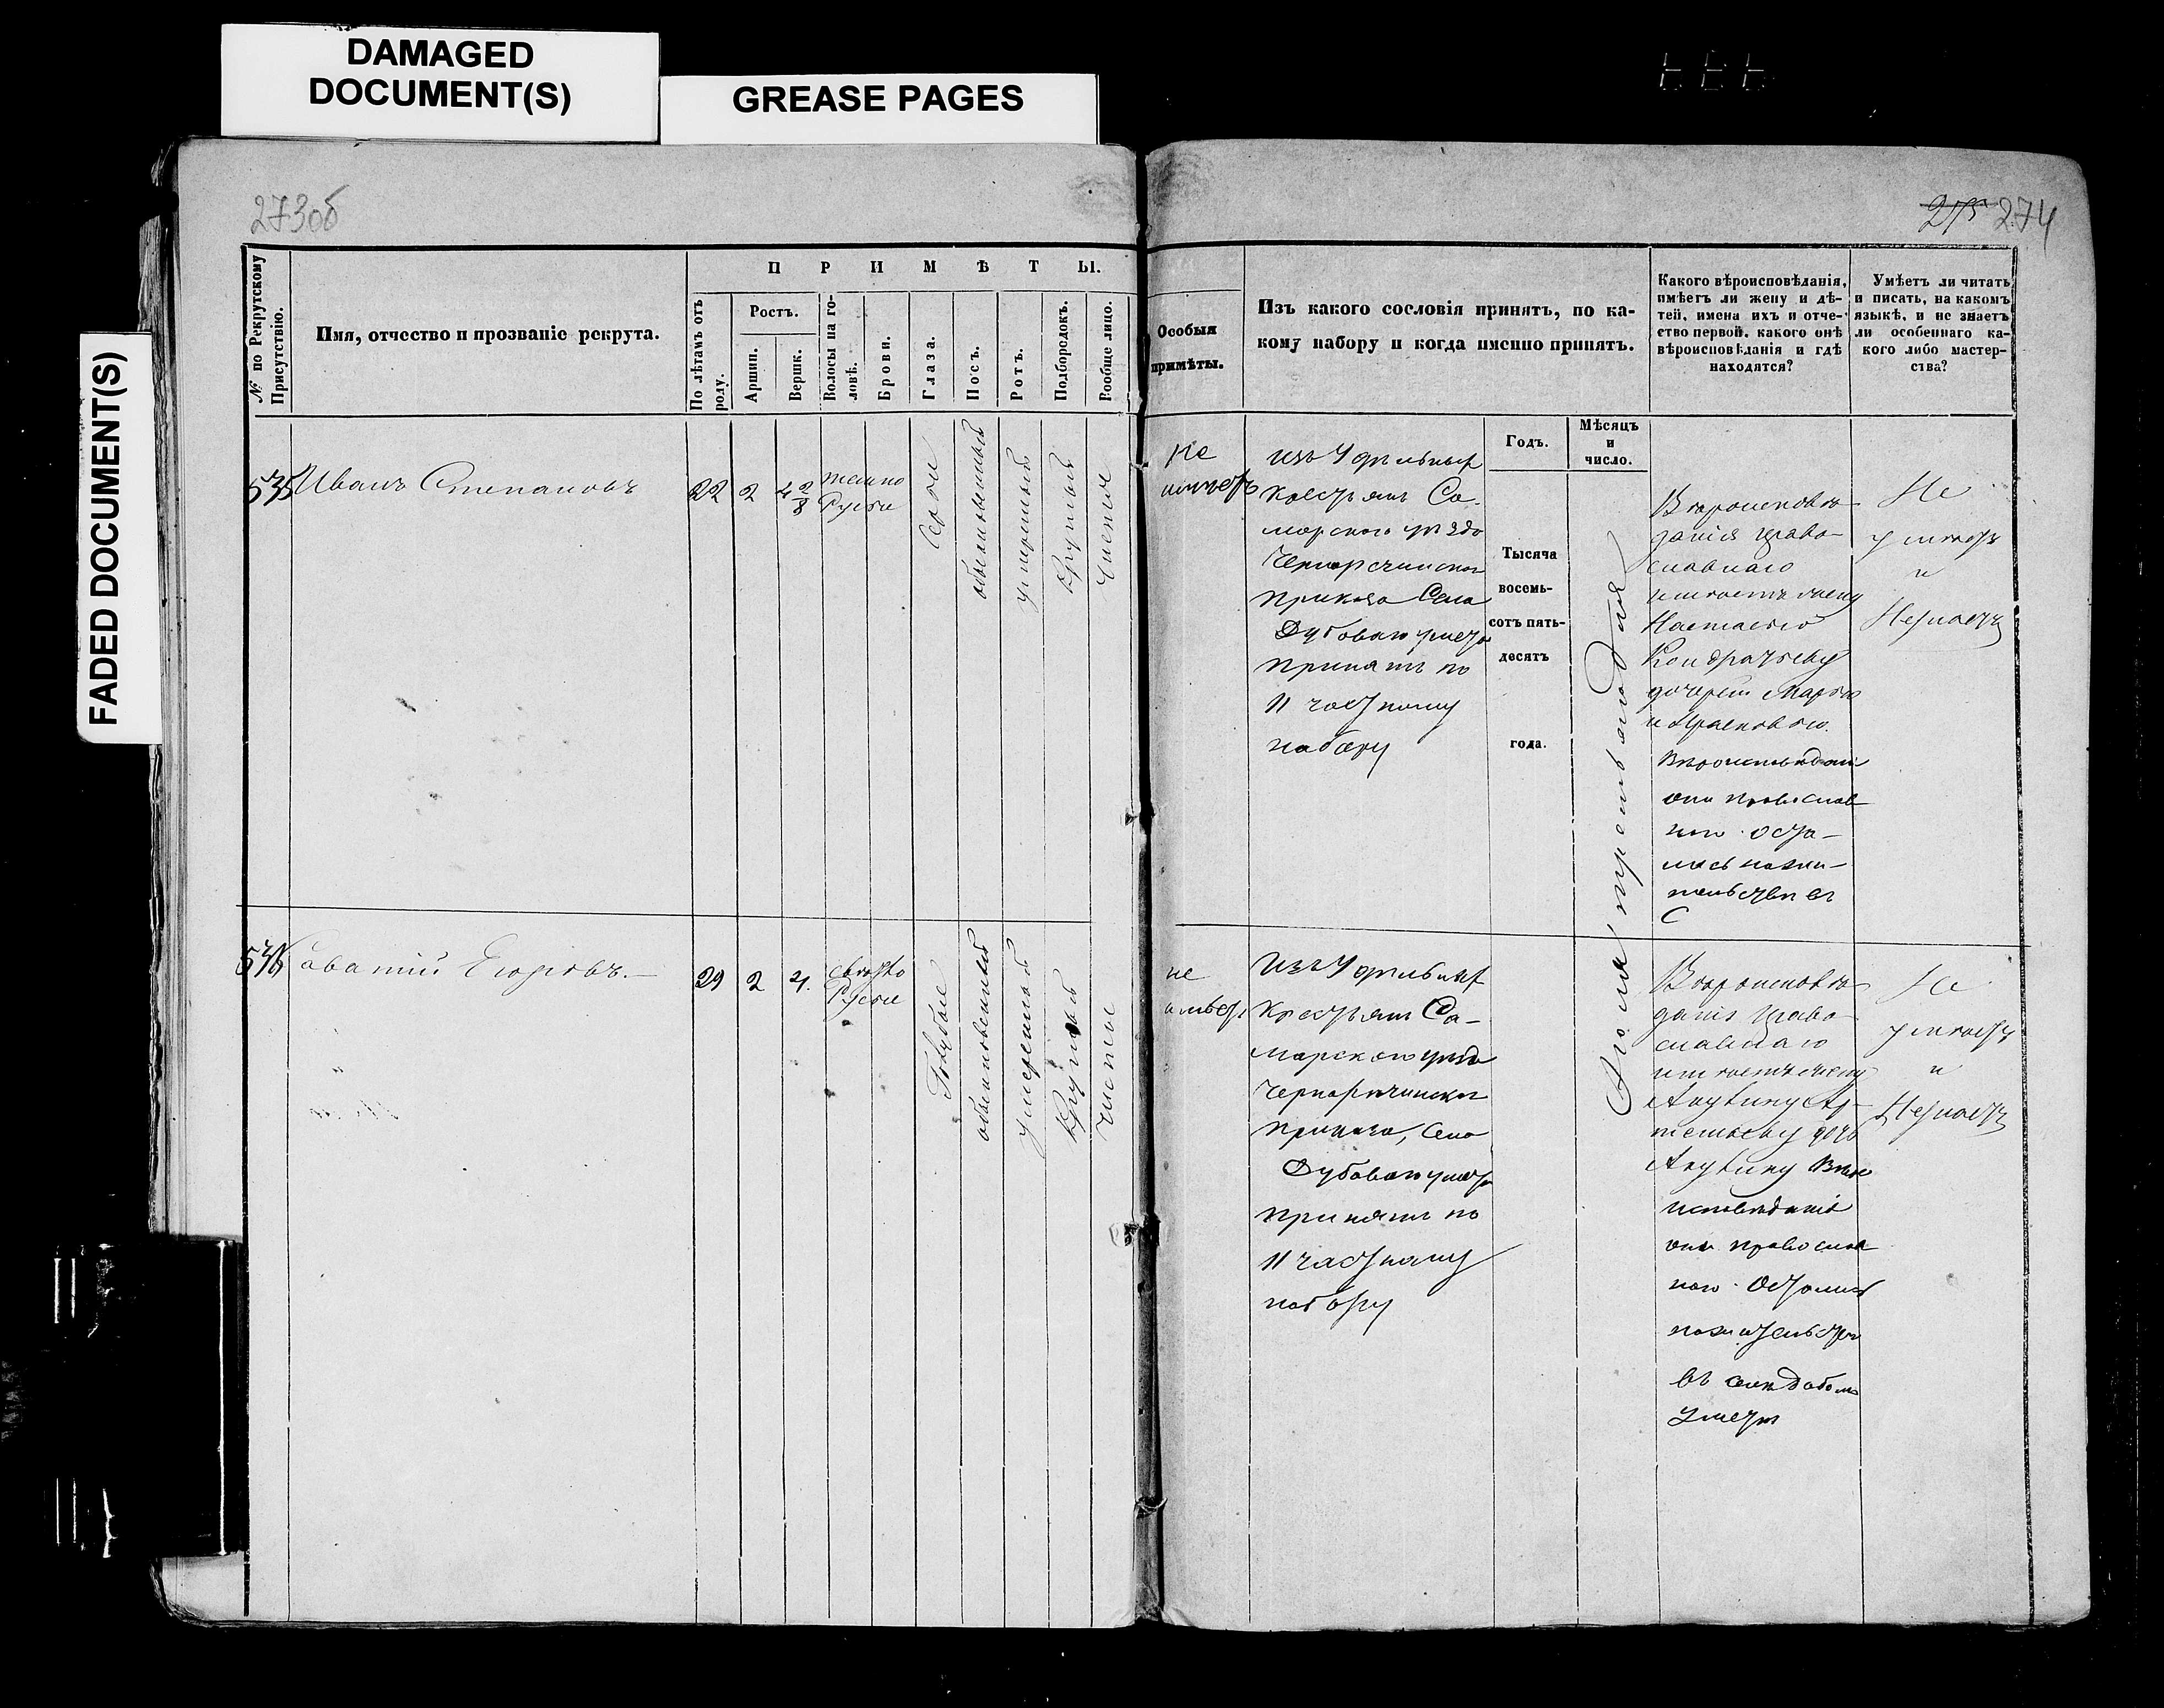 DAMAGED
DOCUMENT(S)
GREASE PAGES
FADED DOCUMENT(S)
273об
275 274
№ по Рекрутскому
Присутствію.
Имя, отчество и прозваніе рекрута.
ПРИМѢТЫ.
По лѣтамъ отъ
роду.
Ростъ.
Аршин.
Вершк.
Волосы на го-
ловѣ.
Брови.
Глаза.
Носъ.
Ротъ.
Подбородокъ.
Вообще лицо.
Особыя
примѣты.
Изъ какого сословія принятъ, по ка-
кому набору и когда именно принятъ.
Какого вѣроисповѣданія,
имѣетъ ли жену и дѣ-
тей, имена ихъ и отче-
ство первой, какого онѣ
вѣроисповѣданія и гдѣ
находятся?
Умѣетъ ли читать
и писать, на какомъ
языкѣ, и не знаетъ
ли особеннаго ка-
кого либо мастер-
ства?
Годъ.
Мѣсяцъ
и
число.
535
Иванъ Степановъ
22
2
4 2/8
темно
Русые
Серые
обыкновенный
умеренный
Круглый
Чистое
Не
имеетъ
изъ Удельныхъ
Крестьянъ Са-
марского уезда
Приказа Села
Дубоваго умета
Принятъ по
11 частному
набору
Тысяча
восемь-
сотъ пять-
десятъ
года.
Вероисповѣ-
данія право-
славнаго
имѣетъ жену
Настасью
Кондратьеву
дочерей Марью
и Прасковью.
Вероисповѣданія
они православ-
наго Оста-
лись на жи-
тельстве въ
С
Не
умѣетъ
и
Незнаетъ
536
Саватій Егоровъ.
29
2
4.
светло
Русые
Голубые
обыкновенный
умеренный
Круглый
Чистое
не
имѣетъ
Изъ Удельныхъ
Крестьянъ Са-
марского уезда
Чернореченского
Приказа, Села
Дубоваго умета
Принятъ по
11 частному
набору
Вероисповѣ-
данія право-
славнаго
имѣетъ жену
Акулину Ар-
темьеву дочь
Акулину Веро
исповѣданія
они православ
наго Остались
на жительстве
въ селе Дубовомъ
Умете
Не
умѣетъ
и
Незнаетъ